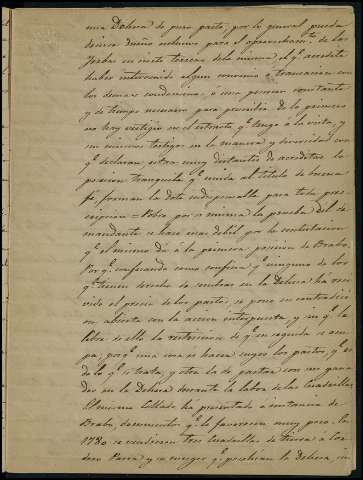 una Dehesa de puro pasto, por lo general, pueda
decirse dueño esclusivo para el aprovecham.to de las
yerbas en ciertos terrenos de la misma, el q.e acredite
haber intervenido algun convenio o transaccion con
los demas condueños, ó una posesion constante
y de tiempo necesario para prescribir. De lo primero
no hay vestigio en el estracto q.e tengo á la vista, y
sus mismos testigos en la manera y diversidad con
q.e declaran estan muy distantes de acreditar la
posesion tranquila q.e unida al titulo de buena
fe, forman la dote indispensable para toda pres-
cripcion = Pobre por si misma la prueba del de-
mandante se hace mas debil por la contestacion
q.e el mismo dá á la primera posicion de Bravo.
Porq.e confesando como confiesa q.e ninguno de los
q.e tienen derecho de entrar en la Dehesa há reci-
vido el precio de los pastos, se pone en contradicci-
on abierta con la accion interpuesta y sin q.e le
libre de ella la restriccion de q.e en seguida se ocu-
pa, porq.e una cosa es hacer suyos los pastos, q.e es
de lo q.e se trata, y otra la de pastar con sus gana-
dos en la Dehesa durante la labor de las Cuadrillas
El mismo Collado ha presentado á instancia de
Bravo, documentos q.e le favorecen muy poco. En
1780 se vendieron tres Cuadrillas de tierra á
Parra y su muger q.e poseian la Dehesa,